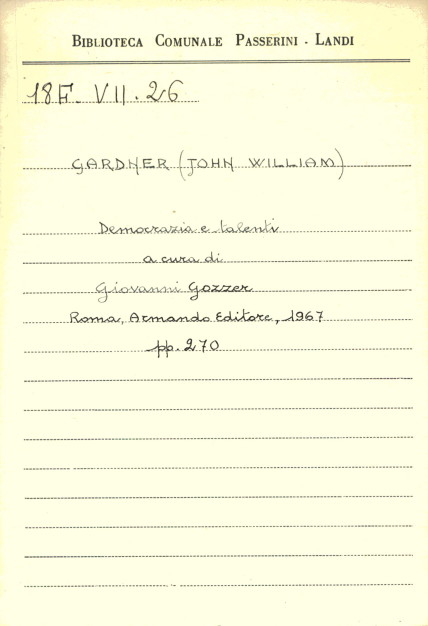 BIBLIOTECA COMUNALE PASSERINI - LANDI
18F. VII. 26
GARDNER (JOHN WILLIAM)
Democrazia e talenti
a cura di
Giovanni Gozzer
Roma, Armando Editore, 1967
pp. 270